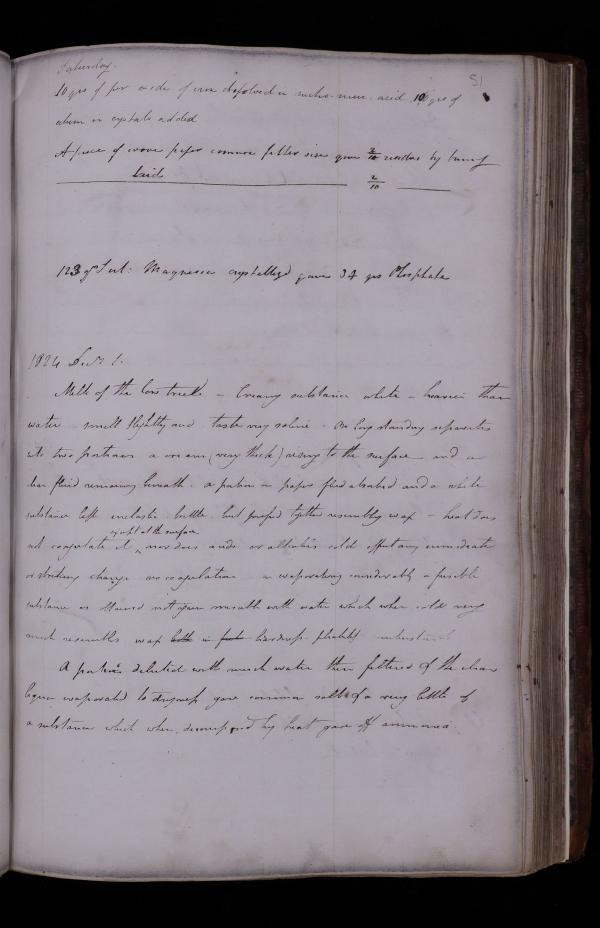 Saturday.
51
10 grs of per oxide of iron dissolved in nitro-mur. acid 10 grs of
alum in crystals added
A piece of wove paper common filter size gave 2/10 residue by burning
laid 2/10
123 grs Sul: Magnesia crystallized gave 34 grs Phosphate
1824 Decr 1.
Milk of the Cow tree - Creamy substance white - heavier than
water smell slightly and taste very saline. On long standing separates
into two portions a cream (very thick) rising to the surface and a
clear fluid remaining beneath. a portion on paper fluid absorbed and a white
substance left inelastic brittle but pressed together resembling wax - heat does
except at the surface
not coagulate it nor does acids or alkalies cold effect any immediate
or striking change no coagulation on evaporating considerably a fusible
substance is formed not again miscible with water which when cold very
much resembles wax both in hardness pliability
A portion diluted with much water then filtered & the clear
liquor evaporated to dryness gave common salt & a very little of
a substance which when decomposed by heat gave off ammonia.